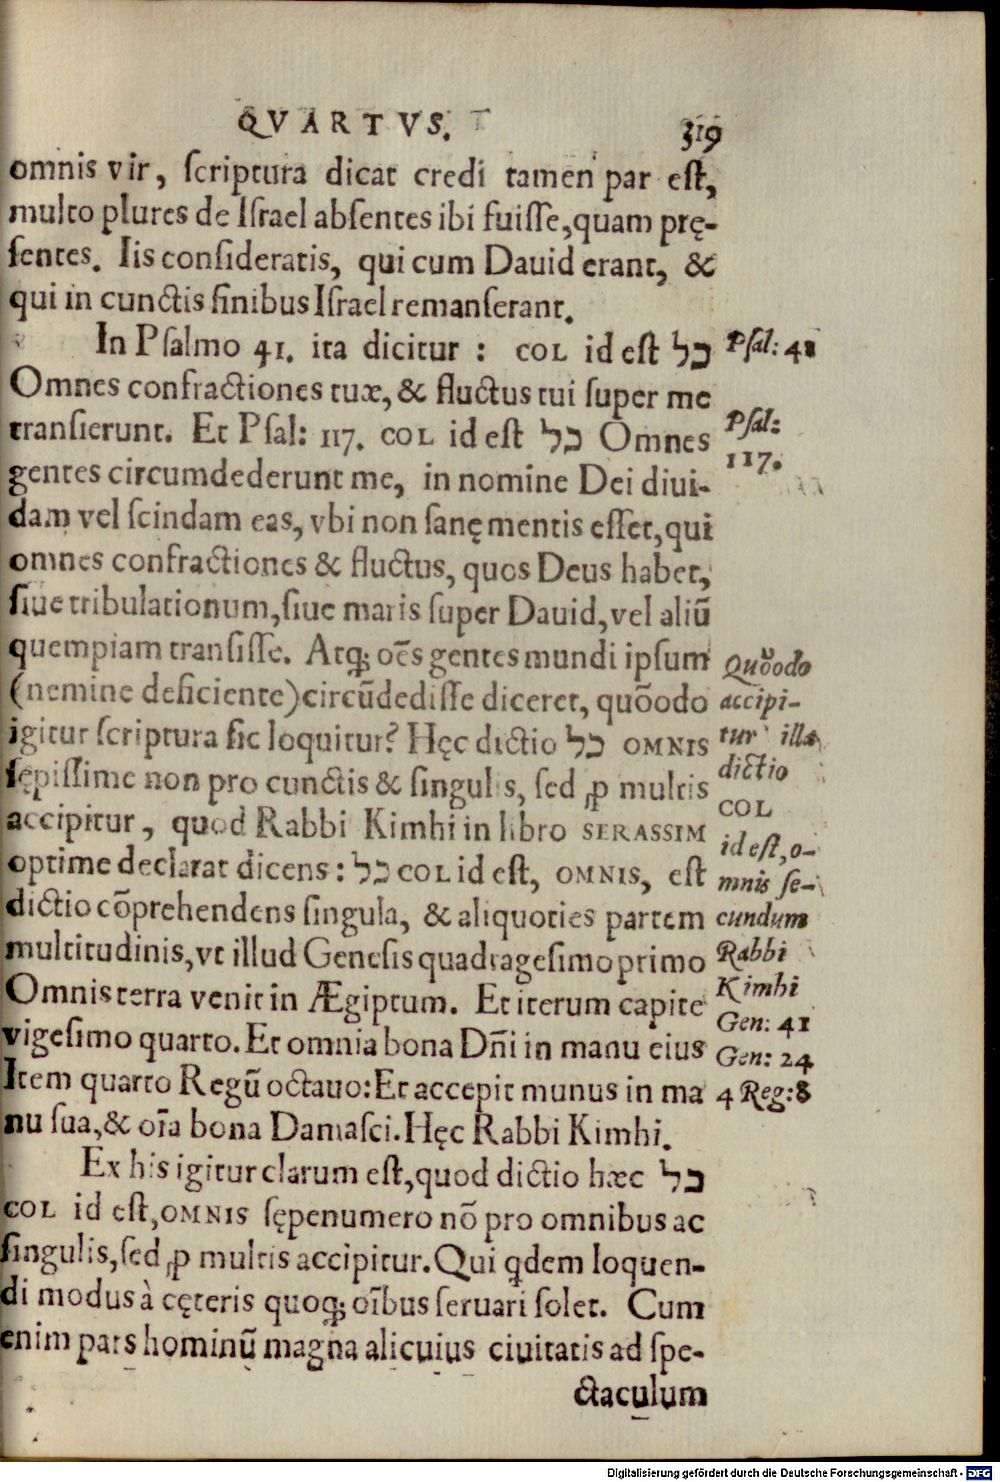 QVARTVS. 319
omnis vir, scriptura dicat credi tamen par est,
multo plures de Israel absentes ibi fuisse, quam prę-
sentes. Iis consideratis, qui cum Dauid erant, &
qui in cunctis finibus Israel remanserant.
In Psalmo 41. ita dicitur : COL id est כל
Psal: 41
Omnes confractiones tuæ, & fluctus tui super me
transierunt. Et Psal: 117. COL id est כל Omnes
Psal:
117.
gentes circumdederunt me, in nomine Dei diui-
dam vel scindam eas, vbi non sanę mentis esset, qui
omnes confractiones & fluctus, quos Deus habet,
siue tribulationum, siue maris super Dauid, vel aliū
quempiam transisse. Atq; oēs gentes mundi ipsum
(nemine deficiente) circūdedisse diceret, quōodo
igitur scriptura sic loquitur? Hęc dictio כל OMNIS
sępissime non pro cunctis & singulis, sed ꝓ multis
accipitur, quod Rabbi Kimhi in libro SERASSIM
optime declarat dicens : כל COL id est, OMNIS, est
dictio cōprehendens singula, & aliquoties partem
multitudinis, vt illud Genesis quadragesimo primo
Omnis terra venit in Ægiptum. Et iterum capite
vigesimo quarto. Et omnia bona Dn̄i in manu eius
Item quarto Regū octauo: Et accepit munus in ma
nu sua, & oīa bona Damasci. Hęc Rabbi Kimhi.
Quōodo
accipi-
tur illa
dictio
COL
id est, o-
mnis se-
cundum
Rabbi
Kimhi
Gen: 41
Gen: 24
4 Reg: 8
Ex his igitur clarum est, quod dictio hæc כל
COL id est, OMNIS sępenumero nō pro omnibus ac
singulis, sed ꝓ multis accipitur. Qui qdem loquen-
di modus à cęteris quoq; oībus seruari solet. Cum
enim pars hominū magna alicuius ciuitatis ad spe-
ctaculum
Digitalisierung gefördert durch die Deutsche Forschungsgemeinschaft - DFG